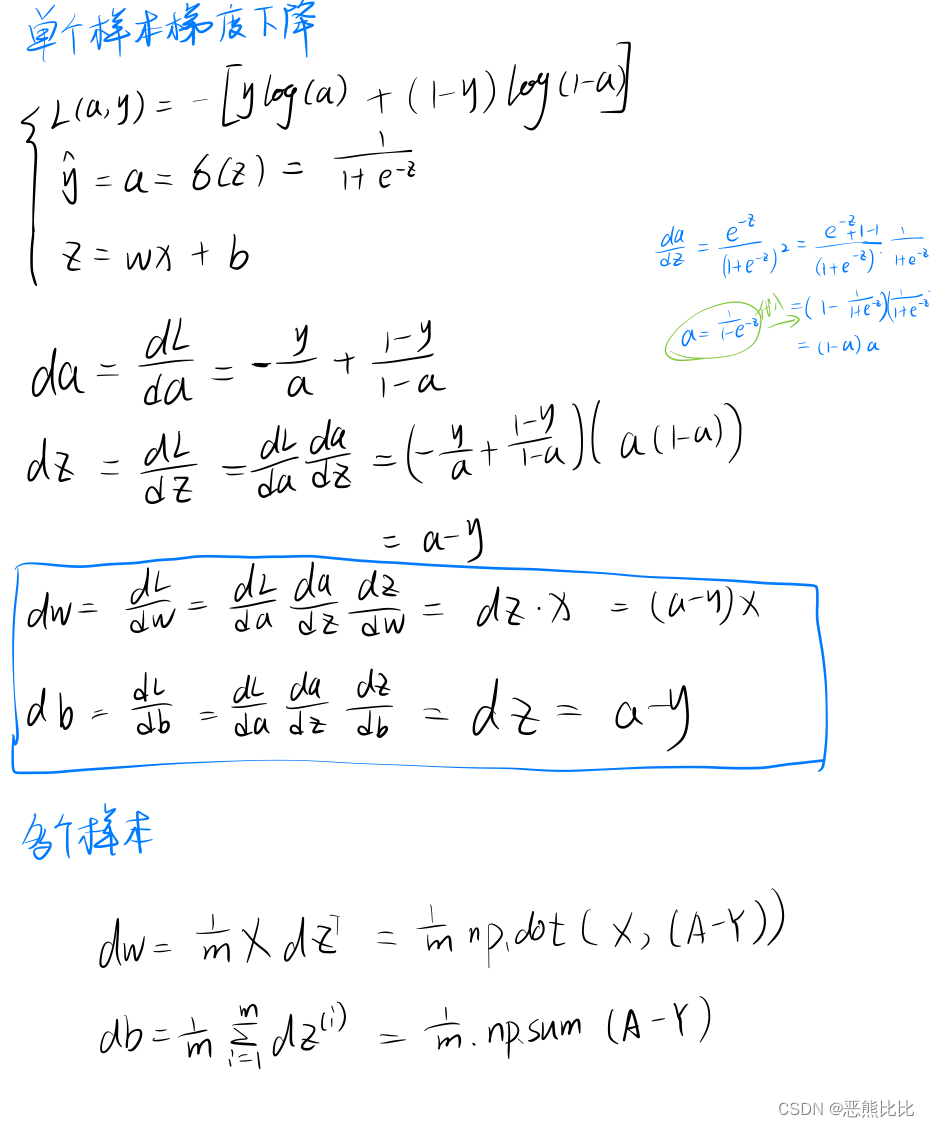 单个样本梯度下降
L(a,y) = -[y log(a) + (1-y) log(1-a)]
ŷ = a = δ(z) = 1/(1+e^{-z})
z = wx + b
da/dz = e^{-z}/(1+e^{-z})^2 = (e^{-z}+1-1)/(1+e^{-z}) · 1/(1+e^{-z})
a = 1/(1-e^{-z}) → = (1 - 1/(1+e^{-z}))(1/(1+e^{-z}))
= (1-a) a
da = dL/da = -y/a + (1-y)/(1-a)
dz = dL/dz = dL/da da/dz = (-y/a + (1-y)/(1-a))(a(1-a))
= a-y
dw = dL/dw = dL/da da/dz dz/dw = dz·x = (a-y)x
db = dL/db = dL/da da/dz dz/db = dz = a-y
个样本
dw = 1/m X dz^T = 1/m np.dot(X, (A-Y))
db = 1/m Σ_{i=1}^{m} dz^{(i)} = 1/m · np.sum (A-Y)
CSDN @恶熊比比